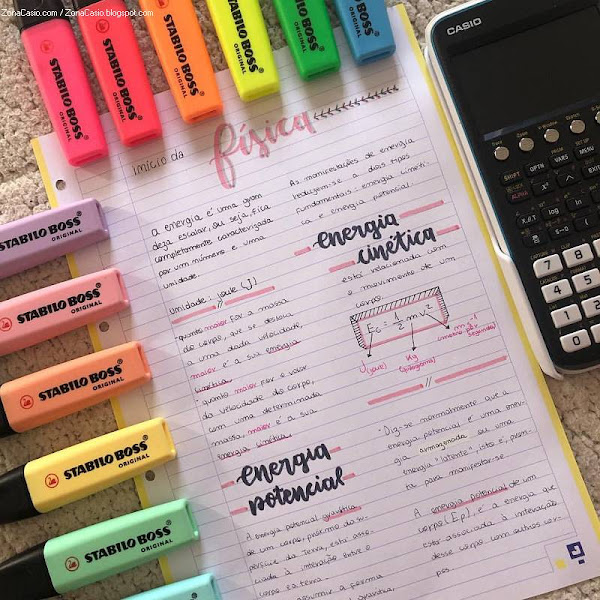 ZonaCasio.com / ZonaCasio.blogspot.com
STABILO BOSS
ORIGINAL
STABILO BOSS
ORIGINAL
STABILO BOSS
ORIGINAL
STABILO BOSS
ORIGINAL
STABILO BOSS
ORIGINAL
STABILO BOSS
ORIGINAL
CASIO
SHIFT OPTN VARS MENU
ALPHA EXIT
7
4 5
1 2
0
STABILO BOSS
ORIGINAL
STABILO BOSS
ORIGINAL
STABILO BOSS
ORIGINAL
STABILO BOSS
ORIGINAL
STABILO BOSS
ORIGINAL
início da física
a energia é uma gran
deza escalar, ou seja, fica
completamente caracterizada
por um número e uma
unidade.
unidade: joule (J)
quanto maior for a massa
do corpo, que se desloca
a uma dada velocidade,
maior é a sua energia
cinética.
quanto maior for o valor
da velocidade do corpo,
com uma determinada
massa, maior é a sua
energia cinética.
energia
potencial
A energia potencial gravítica
de um corpo, próximo da su-
perfície da Terra, está asso-
ciada à interação entre o
corpo e a terra.
assumir a forma
gravítica,
As manifestações de energia
reduzem-se a dois tipos
fundamentais: energia cinéti-
ca e energia potencial.
energia
cinética
está relacionada com
o movimento de um
corpo.
Ec = 1/2 m v²
J (joule)
Kg
(quilograma)
m s⁻¹
(metro por
segundo)
Diz-se normalmente que a
energia potencial é uma ener-
gia armazenada ou uma
energia "latente", isto é, pron-
ta para manifestar-se.
A energia potencial de um
corpo (Ep), é a energia que
estar associada à interação
desse corpo com outros cor-
pos.